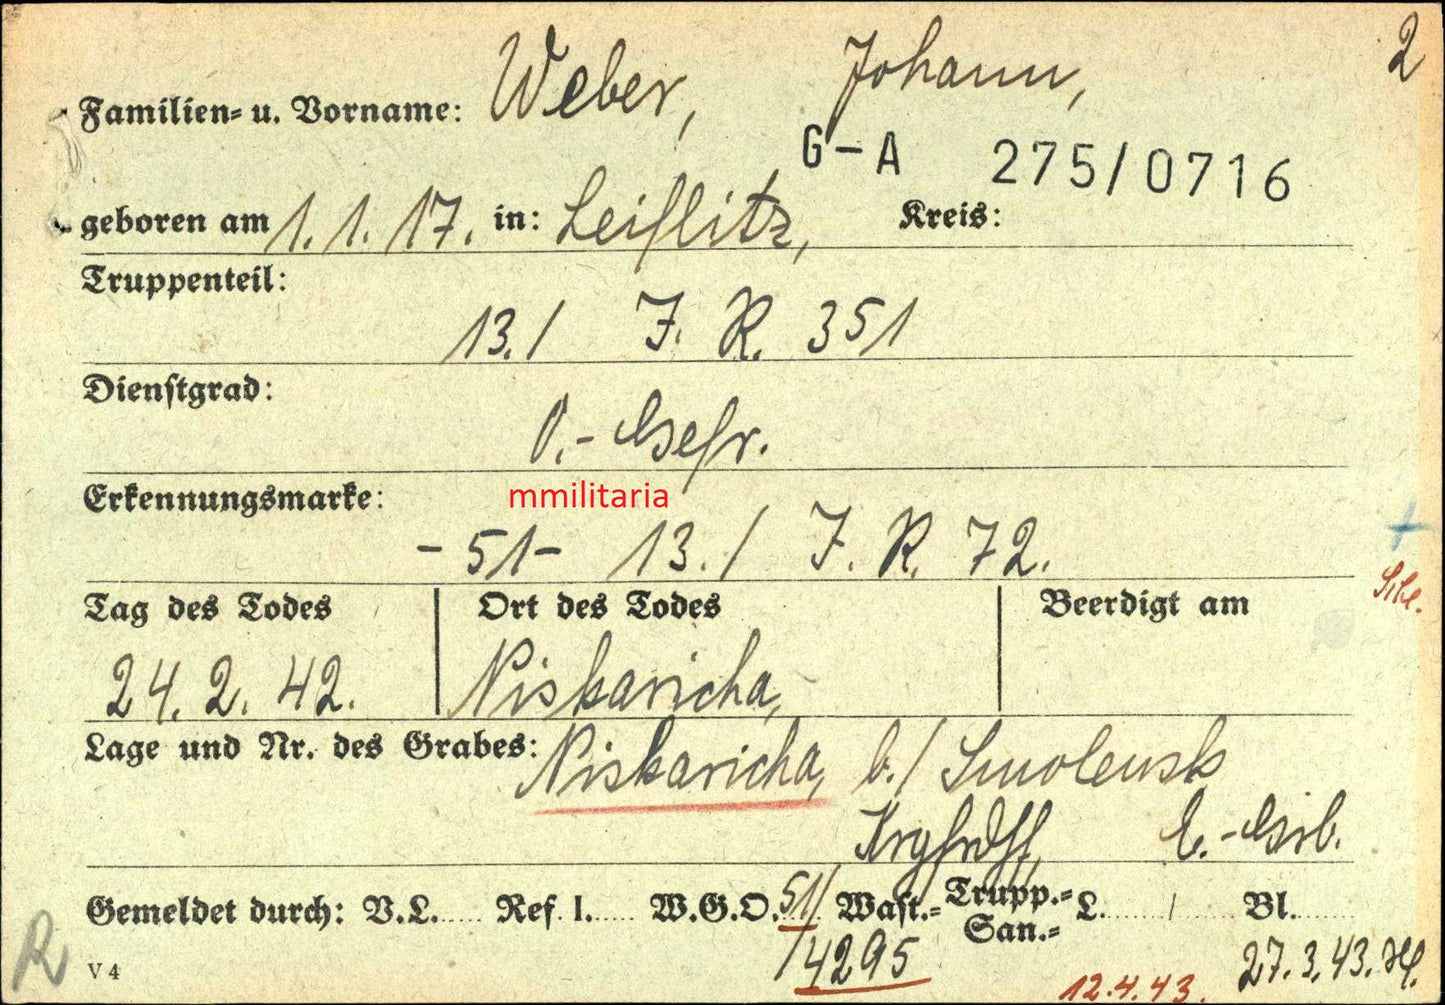 2
Familien- u. Vorname: Weber, Johann,
G-A 275/0716
geboren am 1. 1. 17. in: Leiflitz, Kreis:
Truppenteil:
13./ J. R. 351
Dienstgrad:
O.- Gefr.
Erkennungsmarke:
mmilitaria
- 51 - 13. / J. R. 72.
Tag des Todes Ort des Todes Beerdigt am
24. 2. 42. Niskaricha,
Lage und Nr. des Grabes: Niskaricha, b./ Smolensk
E.-Grb.
Gemeldet durch: V.L. Ref. I. W.G.O. 51/ Wast.- Trupp.- San.- L. Bl.
14295
R V 4 12.4.43. 27.3.43.